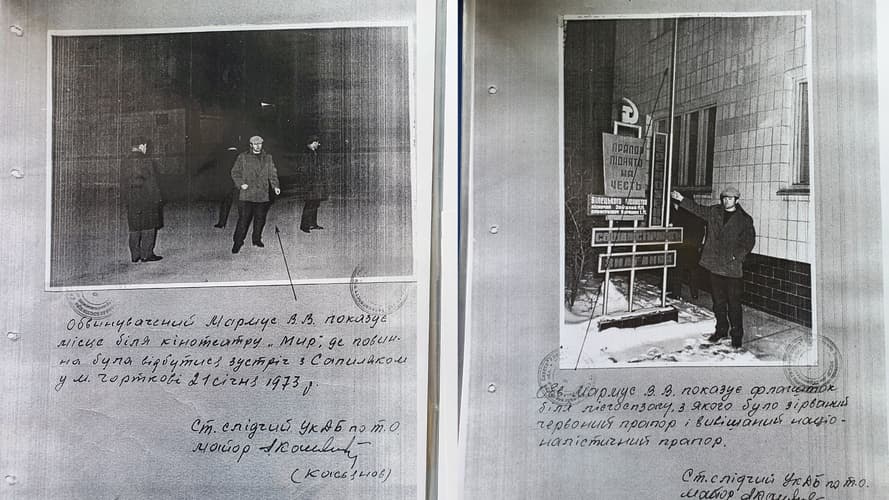 Обвинувачений Мармус В.В. показує
місце біля кінотеатру „Мир", де повин-
на була відбутись зустріч з Сапиляком
у м. Чорткові 21 січня 1973 р.
Ст. слідчий УКДБ по Т.О
майор
ПРАПОР
ПІДНЯТО
НА
ЧЕСТЬ
Обв. Мармус В.В. показує флагшток
біля лісгоспзагу, з якого було зірваний
червоний прапор і вивішаний націо-
налістичний прапор.
Ст. слідчий УКДБ по Т.О.
майор